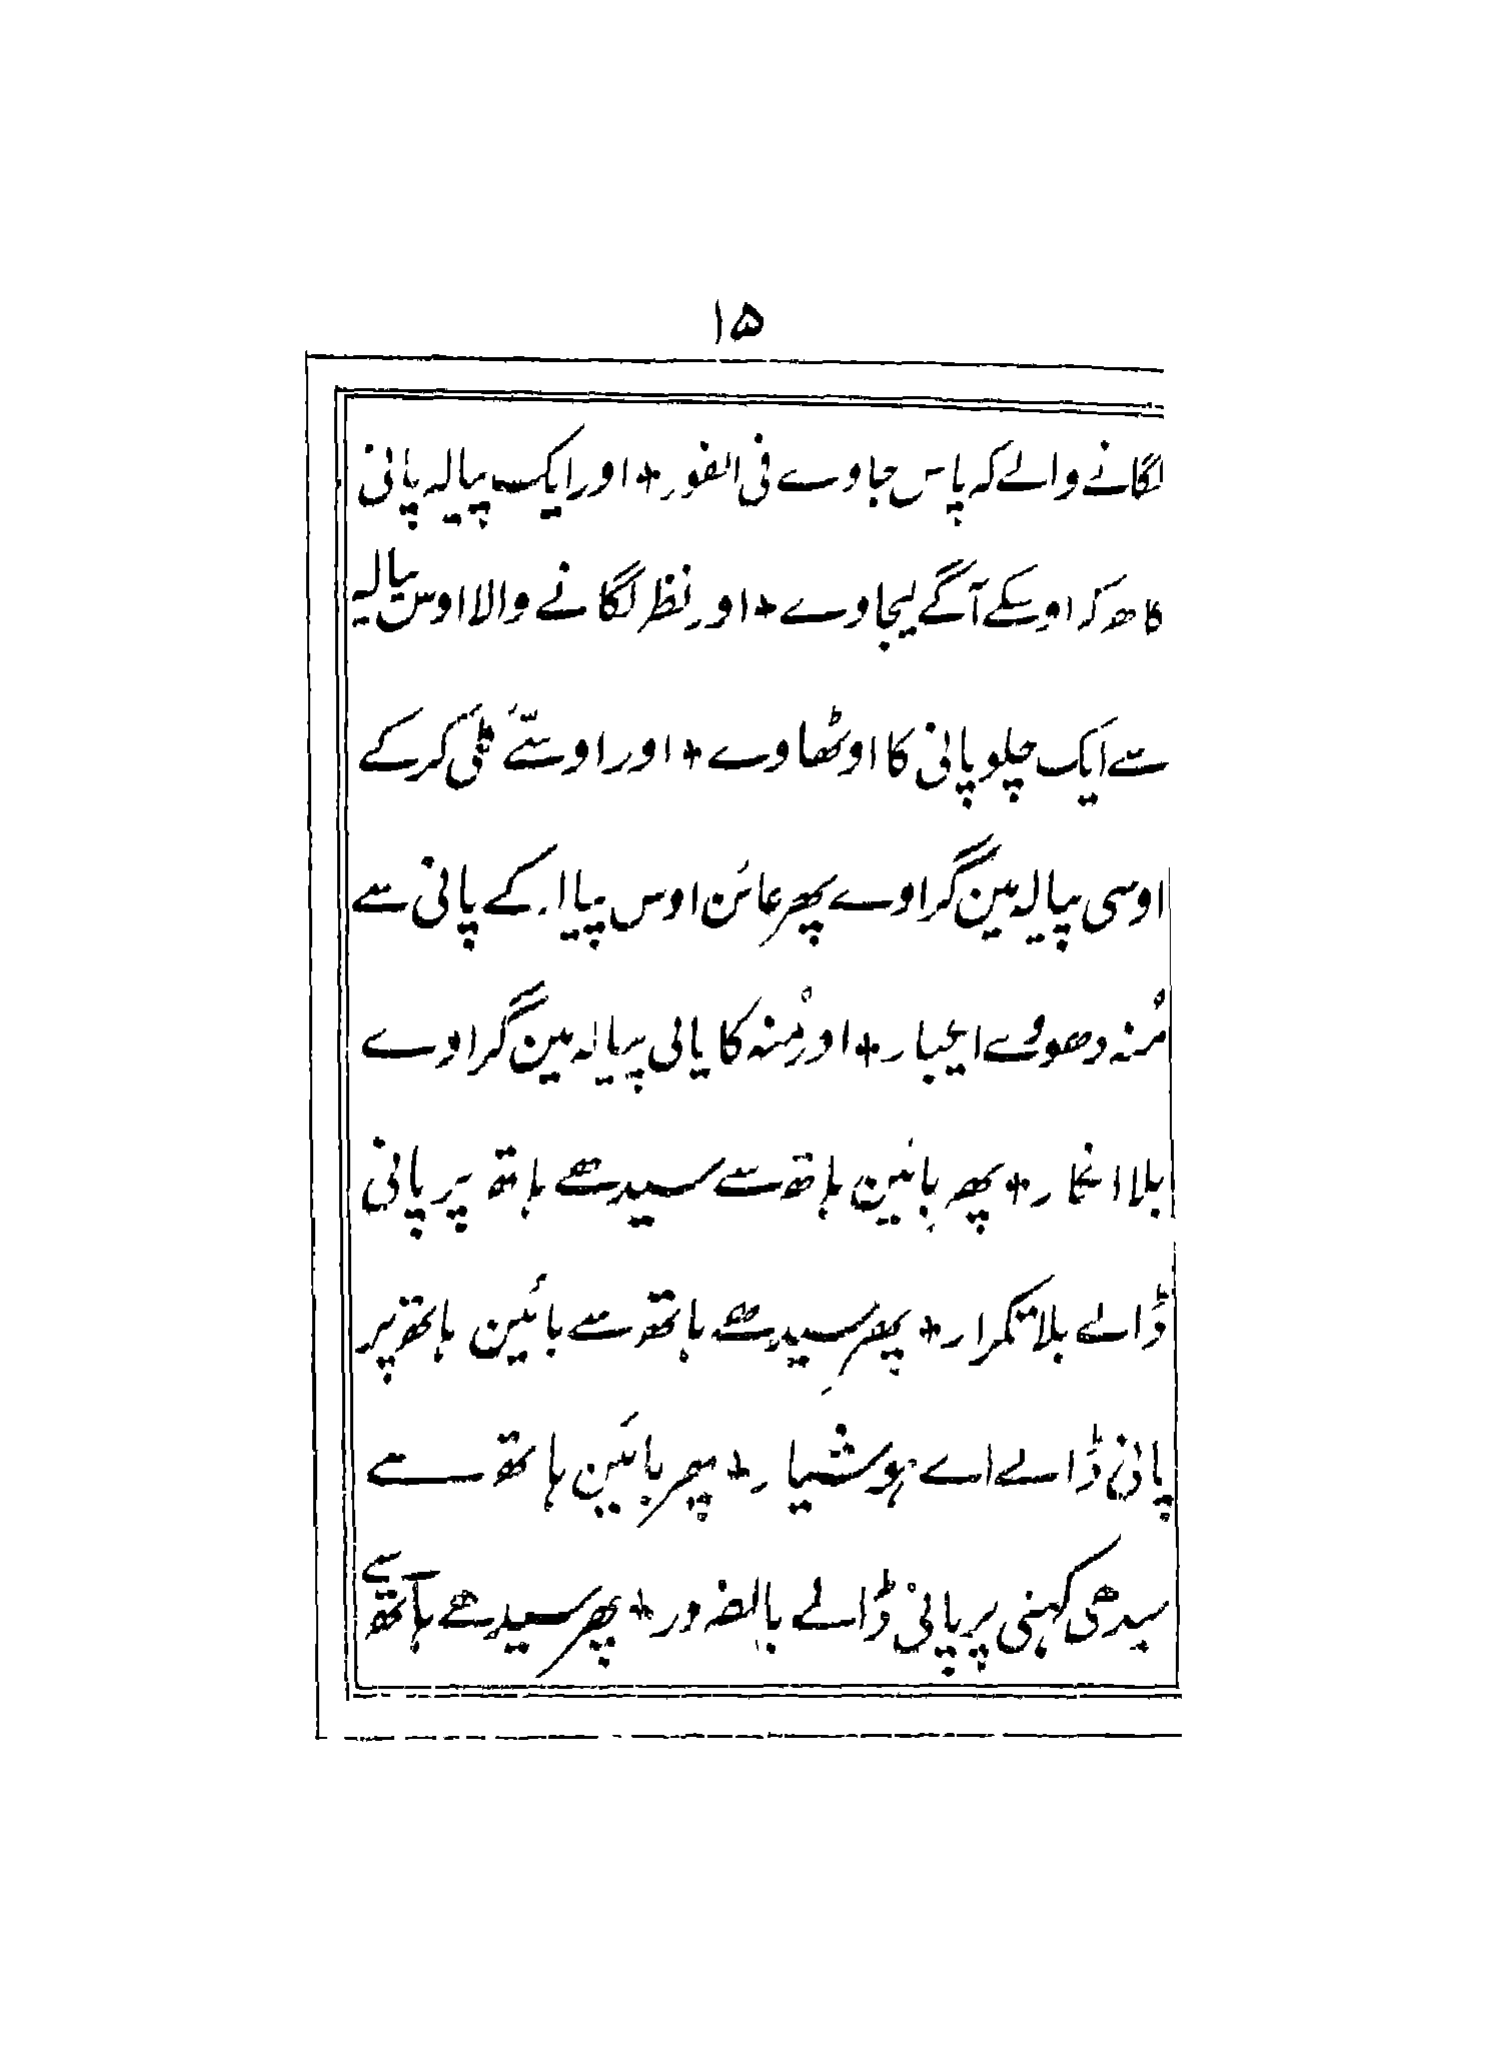 ۱۵
لگانے والے کہ پاس جاوے فی الفور + اور ایک پیالہ پانی
کا ھ کر اوسکے آگے لیجاوے + اور نظر لگانے والا اوس پیالہ
سے ایک چلو پانی کا اوٹھاوے + اور اوسّے کلّی کر کے
اوسی پیالہ مین گراوے پھر عائن اوس پیالہ کے پانی سے
مُنہ دھووے ایکبار + اور مُنہ کا پانی پیالہ مین گراوے
بلا انکار + پھر بائین ہاتھ سے سیدھے ہاتھ پر پانی
ڈالے بلا تکرار + پھر سیدھے ہاتھ سے بائین ہاتھ پر
پانی ڈالے اے ہوشیار + پھر بائین ہاتھ سے
سیدھی کہنی پر پانی ڈالے بالضرور + پھر سیدھے ہاتھ سے